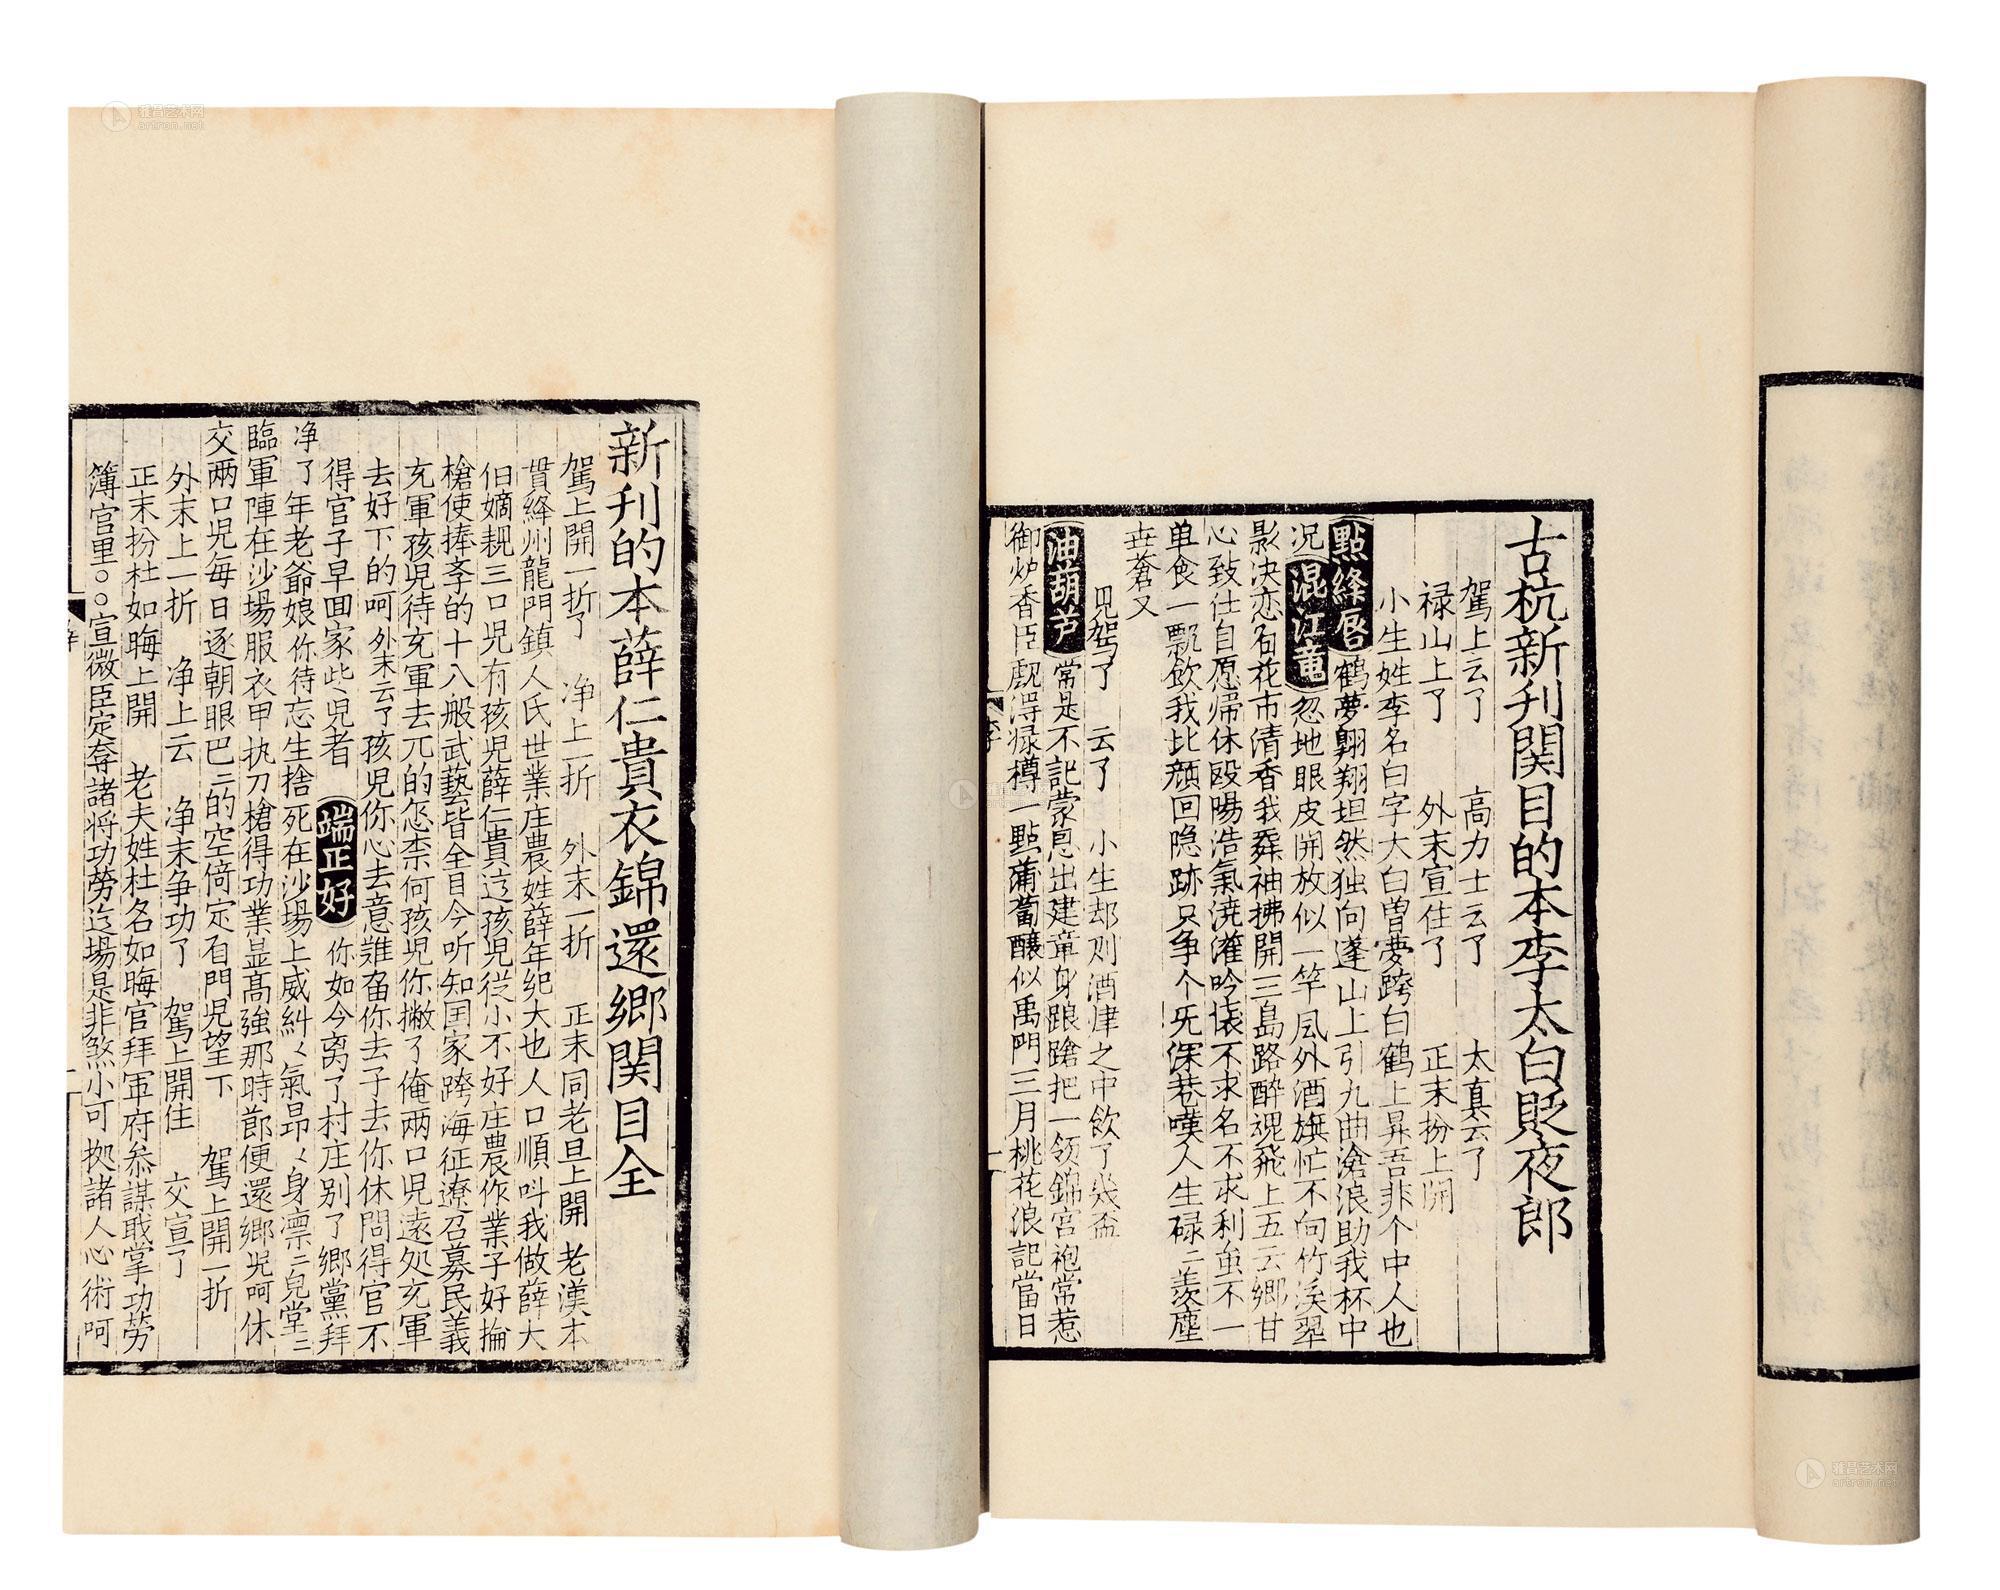 古杭新刊関目的本李太白貶夜郎
駕上云了　高力士云了　太真云了
禄山上了　外末宣住了　正末扮上開
小生姓李名白字太白曽夢跨白鶴上昇吾非个中人也
點絳唇　鶴夢翱翔坦然独向蓬山上引九曲滄浪助我杯中
况　混江竜　忽地眼皮開放似一竿風外酒旗忙不向竹溪翠
影决恋右花市清香我舞袖拂開三島路醉魂飛上五云鄉甘
心致仕自愿帰休㱔陽浩氣澆灌吟懐不求名不求利虽不一
单食一瓢飲我比顔回隐跡只争个无深巷嘆人生碌二羡塵
世蒼又
見駕了　云了　小生却則酒肆之中飲了幾盃
油葫芦　常是不記蒙恩出建章身踉蹌把一领錦宫袍常惹
御炉香臣覷淂禄樽一點蒲萄釀似禹門三月桃花浪記當日
李
一
新刋的本薛仁貴衣錦還鄉関目全
駕上開一折了　净上一折　外末一折　正末同老旦上開　老漢本
貫絳州龍門鎮人氏世業庄農姓薛年紀大也人口順呌我做薛大
伯嫡親三口児有孩児薛仁貴这孩児從小不好庄農作業子好掄
槍使捧孛的十八般武藝皆全目今听知国家跨海征遼召募民義
充軍孩児待充軍去兀的怎柰何孩児你撇了俺两口児遠処充軍
去好下的呵外末云了孩児你心去意難畄你去子去你休問得官不
得官子早囬家此児者　端正好　你如今离了村庄别了鄉黨拜
净了年老爺娘你待忘生捨死在沙場上威糾々氣昂々身凛二皃堂二
臨軍陣在沙場服衣甲执刀槍得功業显髙強那時節便還鄉児呵休
交两口児每日逐朝眼巴二的空倚定有門児望下　駕上開一折
外末上一折　净上云　净末争功了　駕上開住　交宣了
正末扮杜如晦上開　老夫姓杜名如晦官拜軍府叅謀戢掌功劳
簿官里○○宣微臣定奪諸将功勞这場是非煞小可　拠諸人心術呵
一
雅昌艺术网
artron.net
雅昌艺术网
artron.net